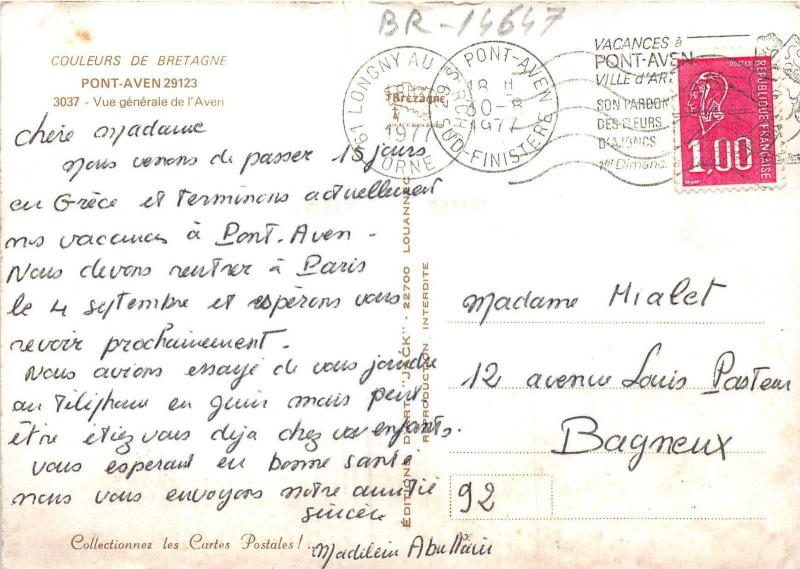 BR-14647
COULEURS DE BRETAGNE
PONT-AVEN 29123
3037 - Vue générale de l'Aven
61 LONGNY AU
1977
ORNE
Bretagne
PONT-AVEN
18 H
30-8
1977
SUD-FINISTÈRE
VACANCES à
PONT-AVEN
VILLE d'ART
SON PARDON
DES FLEURS
D'AJONCS
1er Dimanc.
POSTES
RÉPUBLIQUE FRANÇAISE
1,00
Chère Madame
Nous venons de passer 15 jours
en Grèce et terminons actuellement
nos vacances à Pont-Aven -
Nous devons rentrer à Paris
le 4 septembre et espérons vous
revoir prochainement.
Nous avions essayé de vous joindre
au téléphone en juin mais peut
être étiez vous déja chez vos enfants.
Vous espérant en bonne santé
nous vous envoyons notre amitié
sincère
Madeleine
Collectionnez les Cartes Postales !
ÉDITIONS D'ART "JACK" - 22700 LOUANNEC
REPRODUCTION INTERDITE
Madame Mialet
12 avenue Louis Pasteur
Bagneux
92